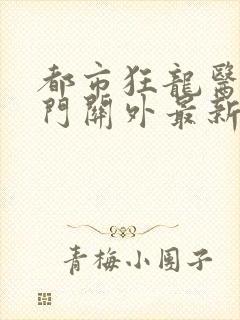 都市狂龍醫
門關外最新
青梅小團子